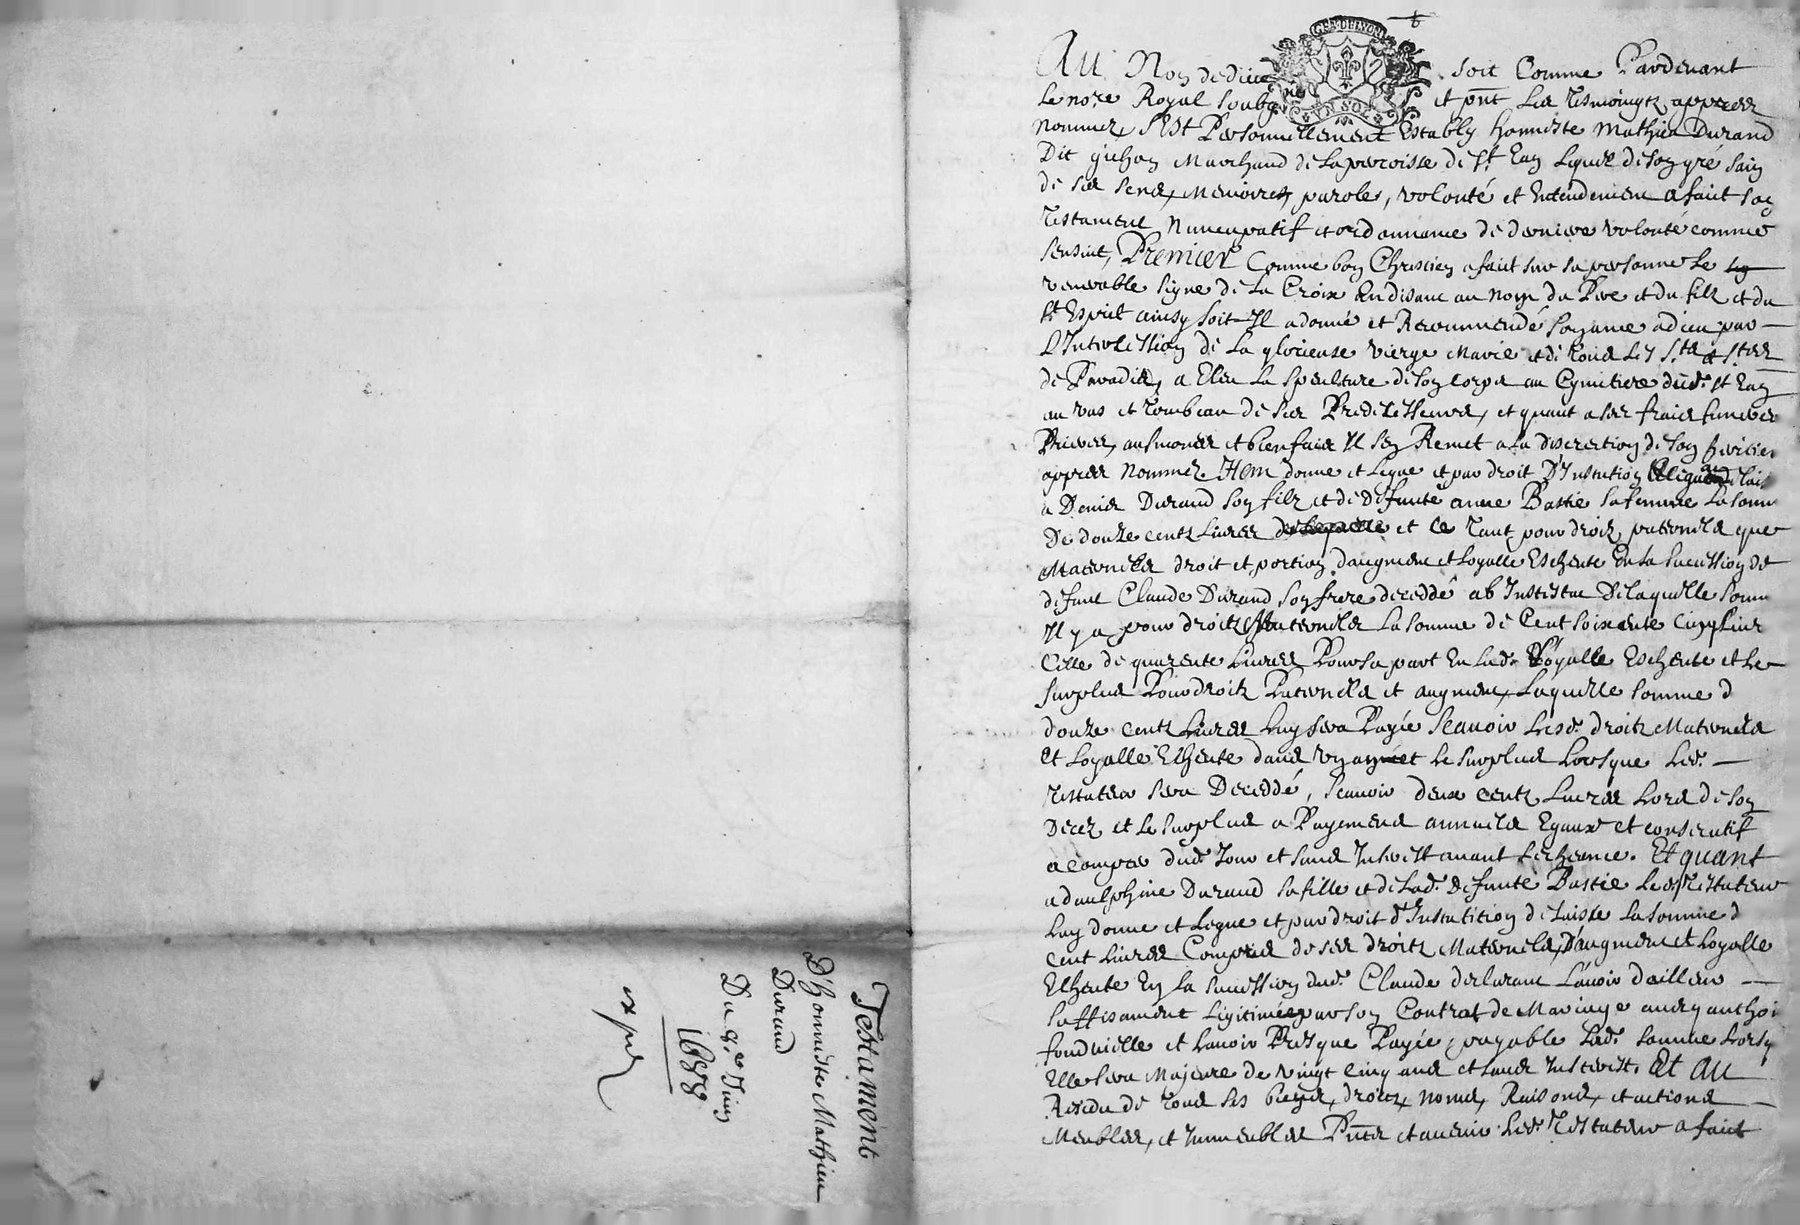 Testament
D'honneste Mathieu
Durand
Du 8.e Juin
1688
expé
GEN DE LYON
UN SOL
Au Nom de dieu soit Comme Pardevant
Le nore Royal soubz.né et pnt Les Tesmoingtz appres
nommez, s'Est Personnellement Estably honneste Mathieu Durand
Dit guhon Marchand de La parroisse de st Eny Lequel de son gré sain
de ses sens, Memoires, parole, volonté et Entendement a fait son
Testament Nuncupatif et ordonnance de derniere volonté comme
sensuit, Premier Comme bon Chrestien a fait sur sa personne Le
venerable signe de La Croix En disant au Nom du Pere et du filz et du
st Esprit ainsy soit-Il a donné et Recommendé son ame a dieu par
L'Intercession de La glorieuse vierge Marie et de tous Les Sts et Stes
de Paradis, a Eleu La Sepulture de son corps au Cymitiere dud. st Eny
au vas et Tombeau de ses Predecesseurs, et quant a ses fraix funebres
Prieres, ausmones et bienfaits Il s'en Remet a La discretion de son heritier
appres Nommez. Item donne et Legue et par droit D'Institution delaisse
a Denis Durand son filz et de Defunte anne Bastie sa femme La somme
De douze centz Livres et ce Tant pour droitz paternels que
Maternels droit et portion d'augment et Loyalle Escheute En La Succession de
defunt Claude Durand son frere deceddé ab Intestat De laquelle somme
Il y a pour droitz Maternels La somme de Cent soixente Cinq Livres
Celle de quarente Livres Pour sa part En Lad. Loyalle Escheute et Le
surplus Pour droitz Paternels et augment, Laquelle somme de
douze centz Livres Luy sera Payée Scavoir Lesd. droitz Maternels
et Loyalle Escheute dans un an et Le surplus Lorsque Led.
Testateur sera Deceddé, Scavoir deux centz Livres Lors de son
Decez et Le surplus a Payements annuels Egaux et consecutif
a compter dud. Jour et sans Interest avant L'echeance. Et quant
a daulphine Durand sa fille et de Lad. defunte Bastie Led. Testateur
Luy donne et Legue et par droit d'Institution delaisse La somme de
cent Livres Compris de ses droitz Maternels, D'augment et Loyalle
Escheute En La Succession dud. Claude declarant L'avoir d'ailleurs
suffisament Legitimée par son Contrat de Mariage avec anthoine
fondvielle et L'avoir Presque Payée, payable Lad. somme Lorsqu
Elle sera Majeure de vingt cinq ans et sans Interest. Et Au
Residu de Tous ses biens, droitz, noms, Raisons, et actions
Meubles, et Immeubles Pnts et avenir Led. Testateur a fait